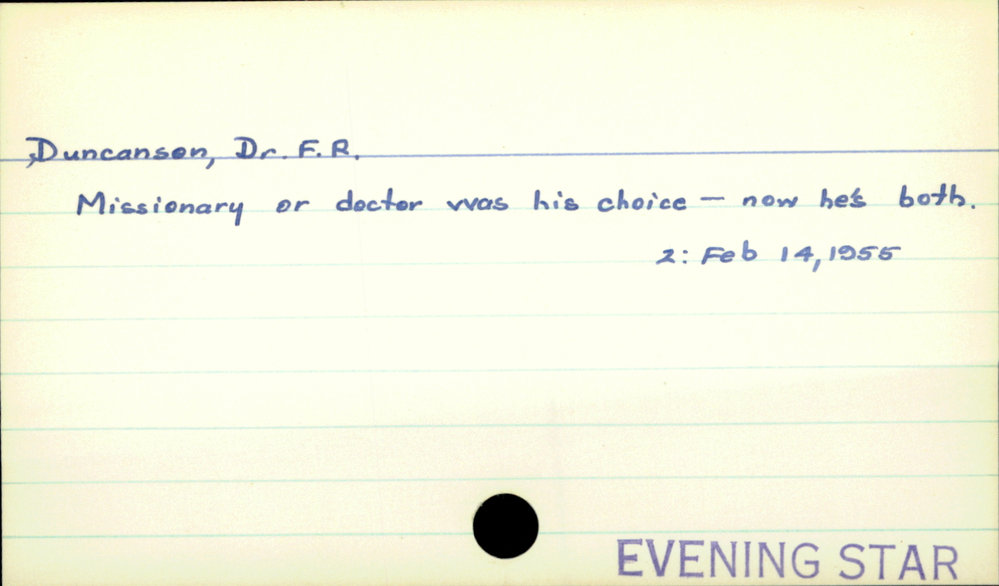 Duncanson, Dr. F. R.
Missionary or doctor was his choice — now he's both.
2: Feb 14, 1955
EVENING STAR